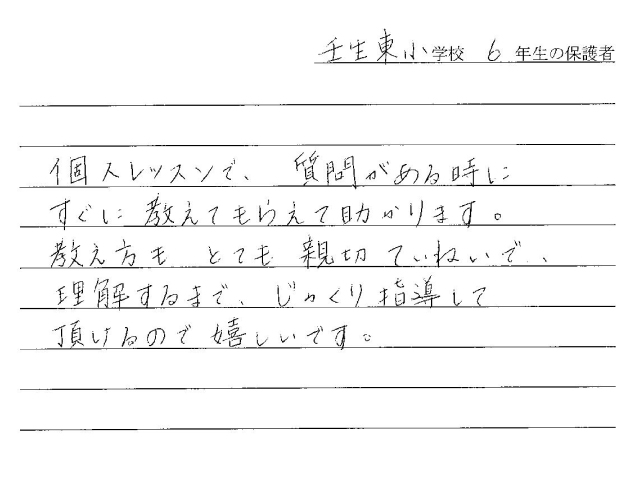 壬生東小学校 6 年生の保護者
個人レッスンで、質問がある時に
すぐに教えてもらえて助かります。
教え方も とても 親切ていねいで、
理解するまで、じっくり指導して
頂けるので嬉しいです。